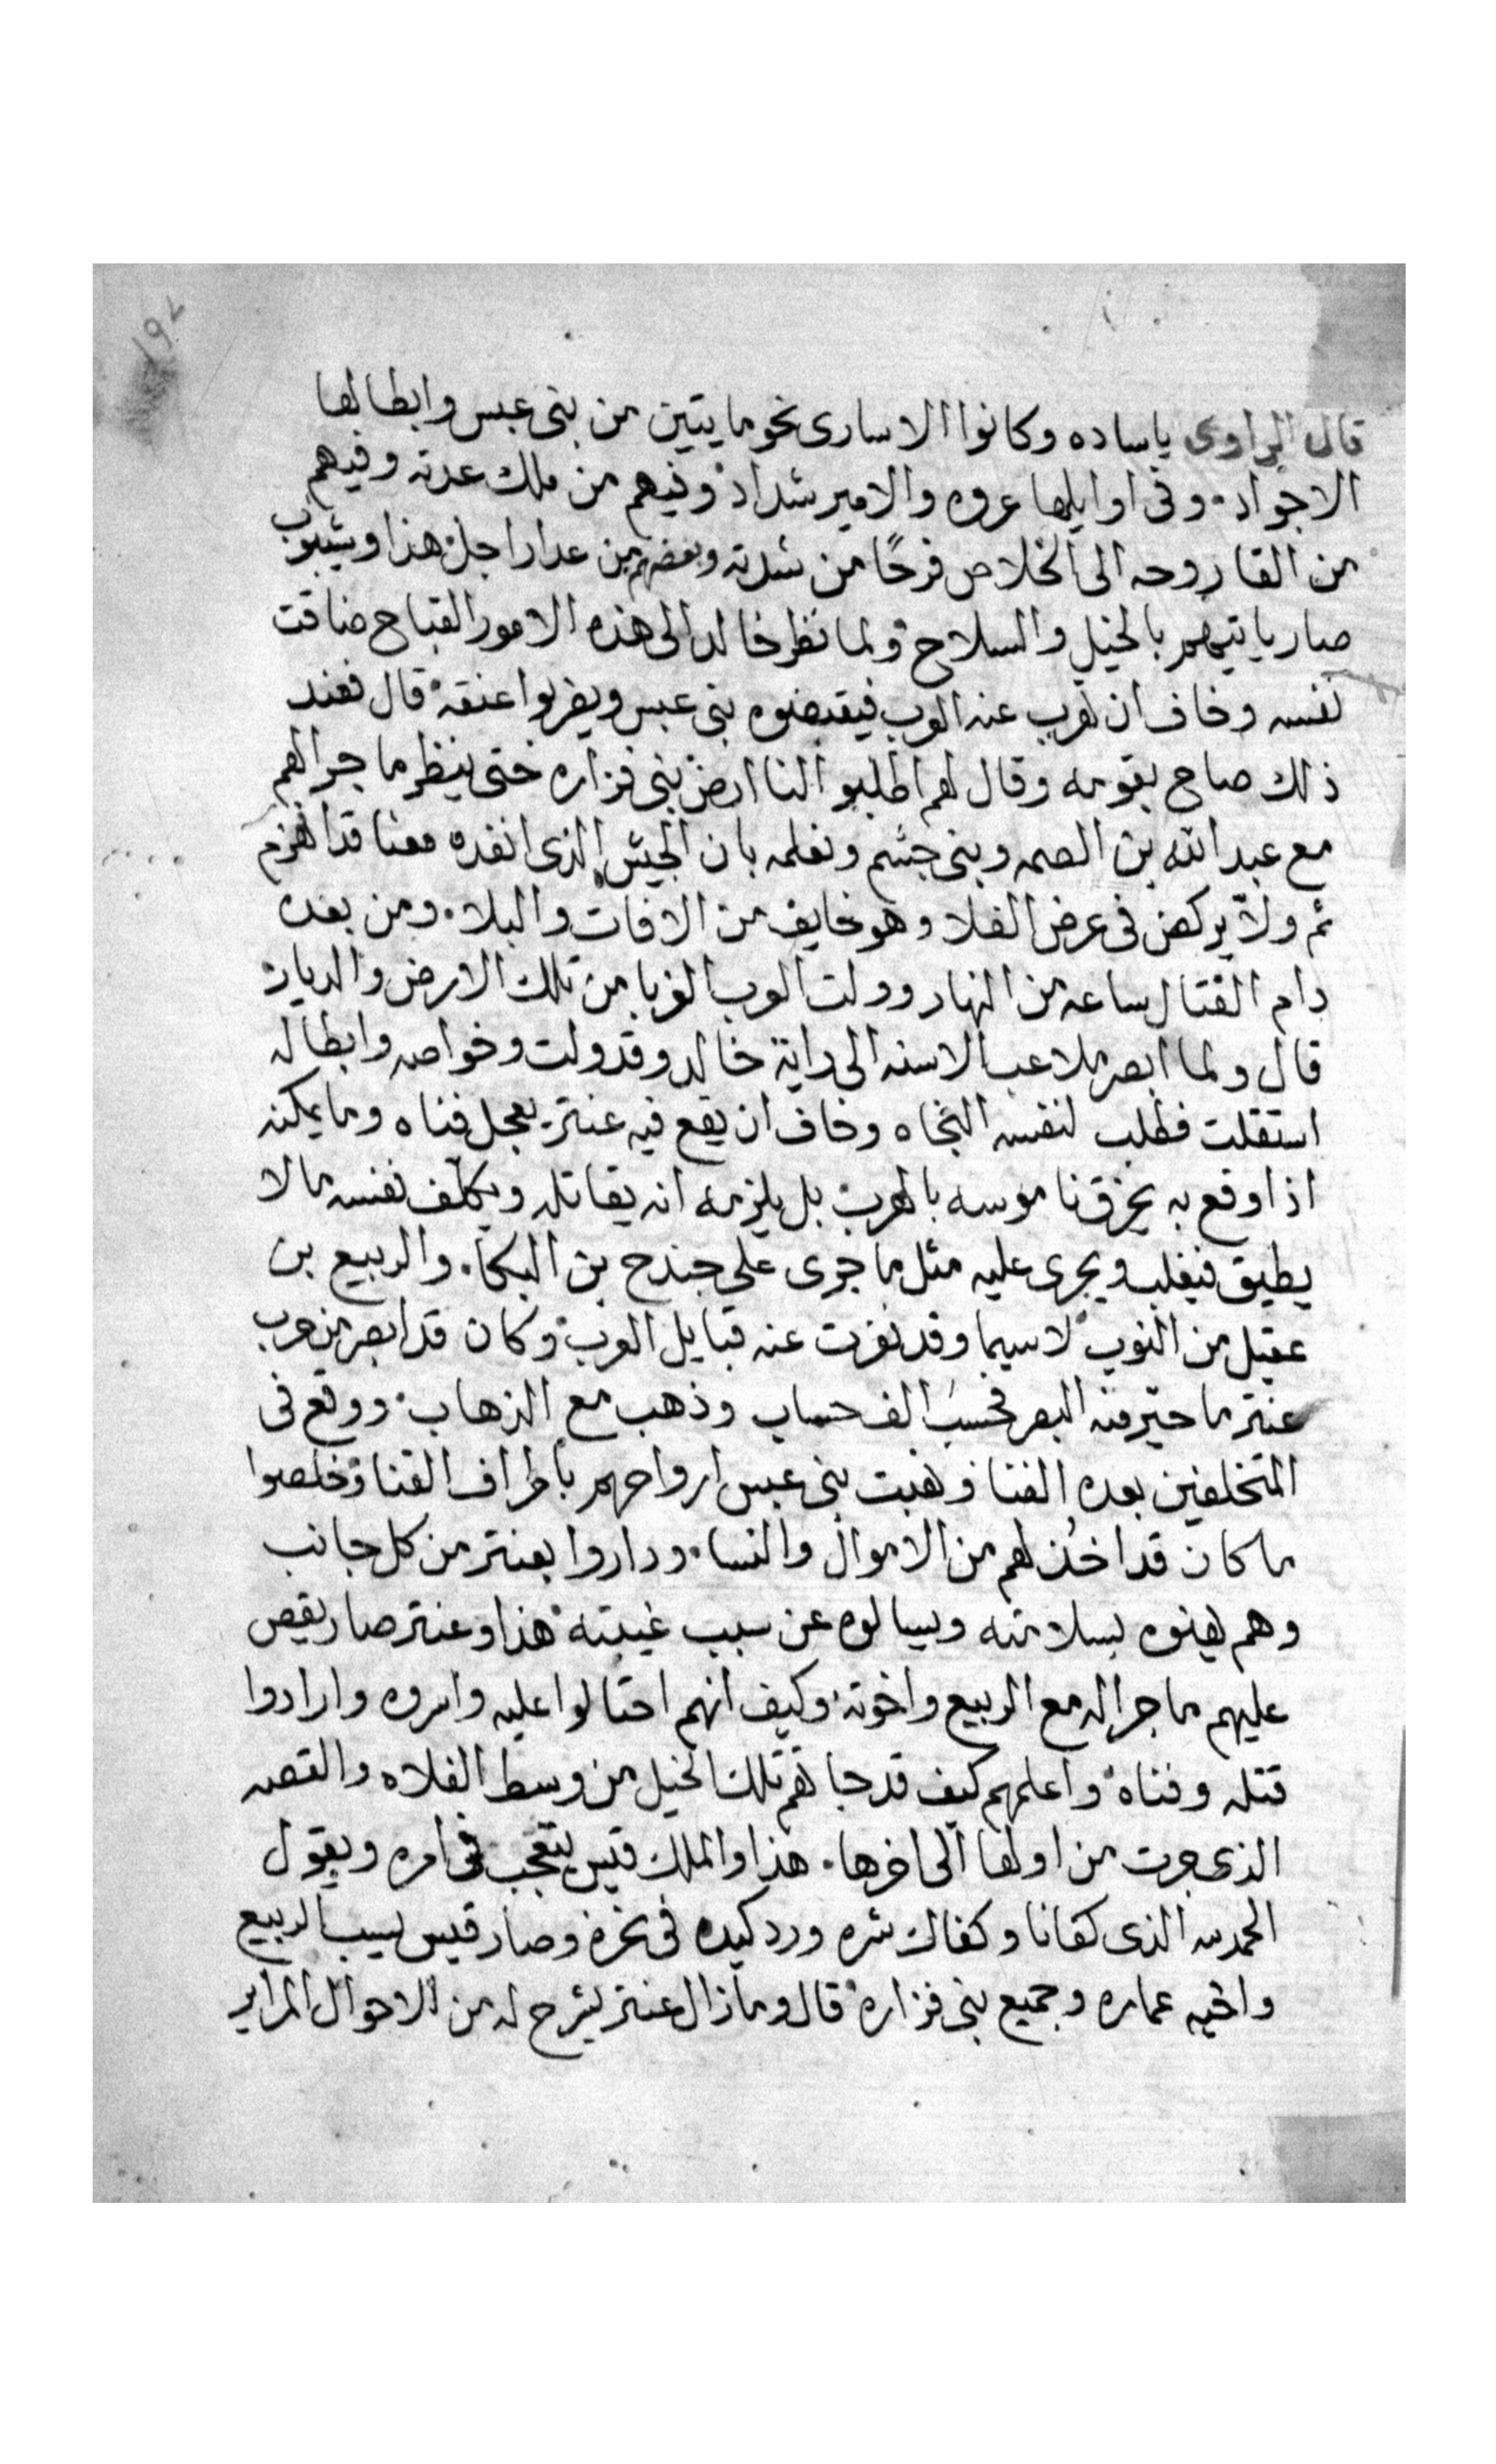 ١٩٢
قال الراوى ياساده وكانوا الاسارى نحو مايتين من بنى عبس وابطالها
الاجواد وفى اوايلها عروه والامير شداد وفيهم من ملك عدته وفيهم
من القا روحه الى الخلاص فرحًا من شدته وبعضهم من عدا راجل هذا وشيبوب
صار ياتيهم بالخيل والسلاح ولما نظر خالد الى هذه الامور القباح ضاقت
نفسه وخاف ان تهرب عنه العرب فيقبضوه بنى عبس ويضربوا عنقه قال فعند
ذلك صاح بقومه وقال لهم اطلبوا لنا ارض بنى فزاره حتى ننظر ما جرا لهم
مع عبد الله بن الصمه وبنى جشم ونعلمه بان الجيش الذى انفده معنا قد انهزم
ثم ولاّ يركض فى عرض الفلا وهو خايف من الافات والبلاء ومن بعده
دام القتال ساعه من النهار وولت العرب الغربا من تلك الارض والديار
قال ولما ابصر ملاعب الاسنه الى راية خالد وقد ولت وخواصه وابطاله
استقلت فطلب لنفسه النجاه وخاف ان يقع فيه عنتر يعجل فناه وما يمكنه
اذا وقع به يخرق ناموسه بالهرب بل يلزمه انه يقاتله ويكلّف نفسه ما لا
يطيق فيغلب ويجرى عليه مثل ما جرى على جندح بن البكاء والربيع بن
عقيل من النوب لا سيما وقد نفرت عنه قبايل العرب وكان قد ابصر من حرب
عنتر ما حيّر منه البصر فحسب الف حساب وذهب مع الذهاب ووقع فى
المتخلفين بعده الفنا ونهبت بنى عبس ارواحهم باطراف القنا وخلصوا
ما كان قد اخُذ لهم من الاموال والنساء وداروا بعنتر من كل جانب
وهم يهنوه بسلامته ويسالوه عن سبب غيبته هذا وعنتر صار يقص
عليهم ما جرا له مع الربيع واخوته وكيف انهم احتالوا عليه واسروه وارادوا
قتله وفناه واعلمهم كيف قد جاتهم تلك الخيل من وسط الفلاه والقصه
الذى جرت من اولها الى اخرها هذا والملك قيس يتعجب فى امره ويقول
الحمد لله الذى كفانا وكفاك شره ورد كيده فى نحره وصار قيس يسب الربيع
واخيه عماره وجميع بنى فزاره قال وما زال عنتر يشرح له من الاحوال